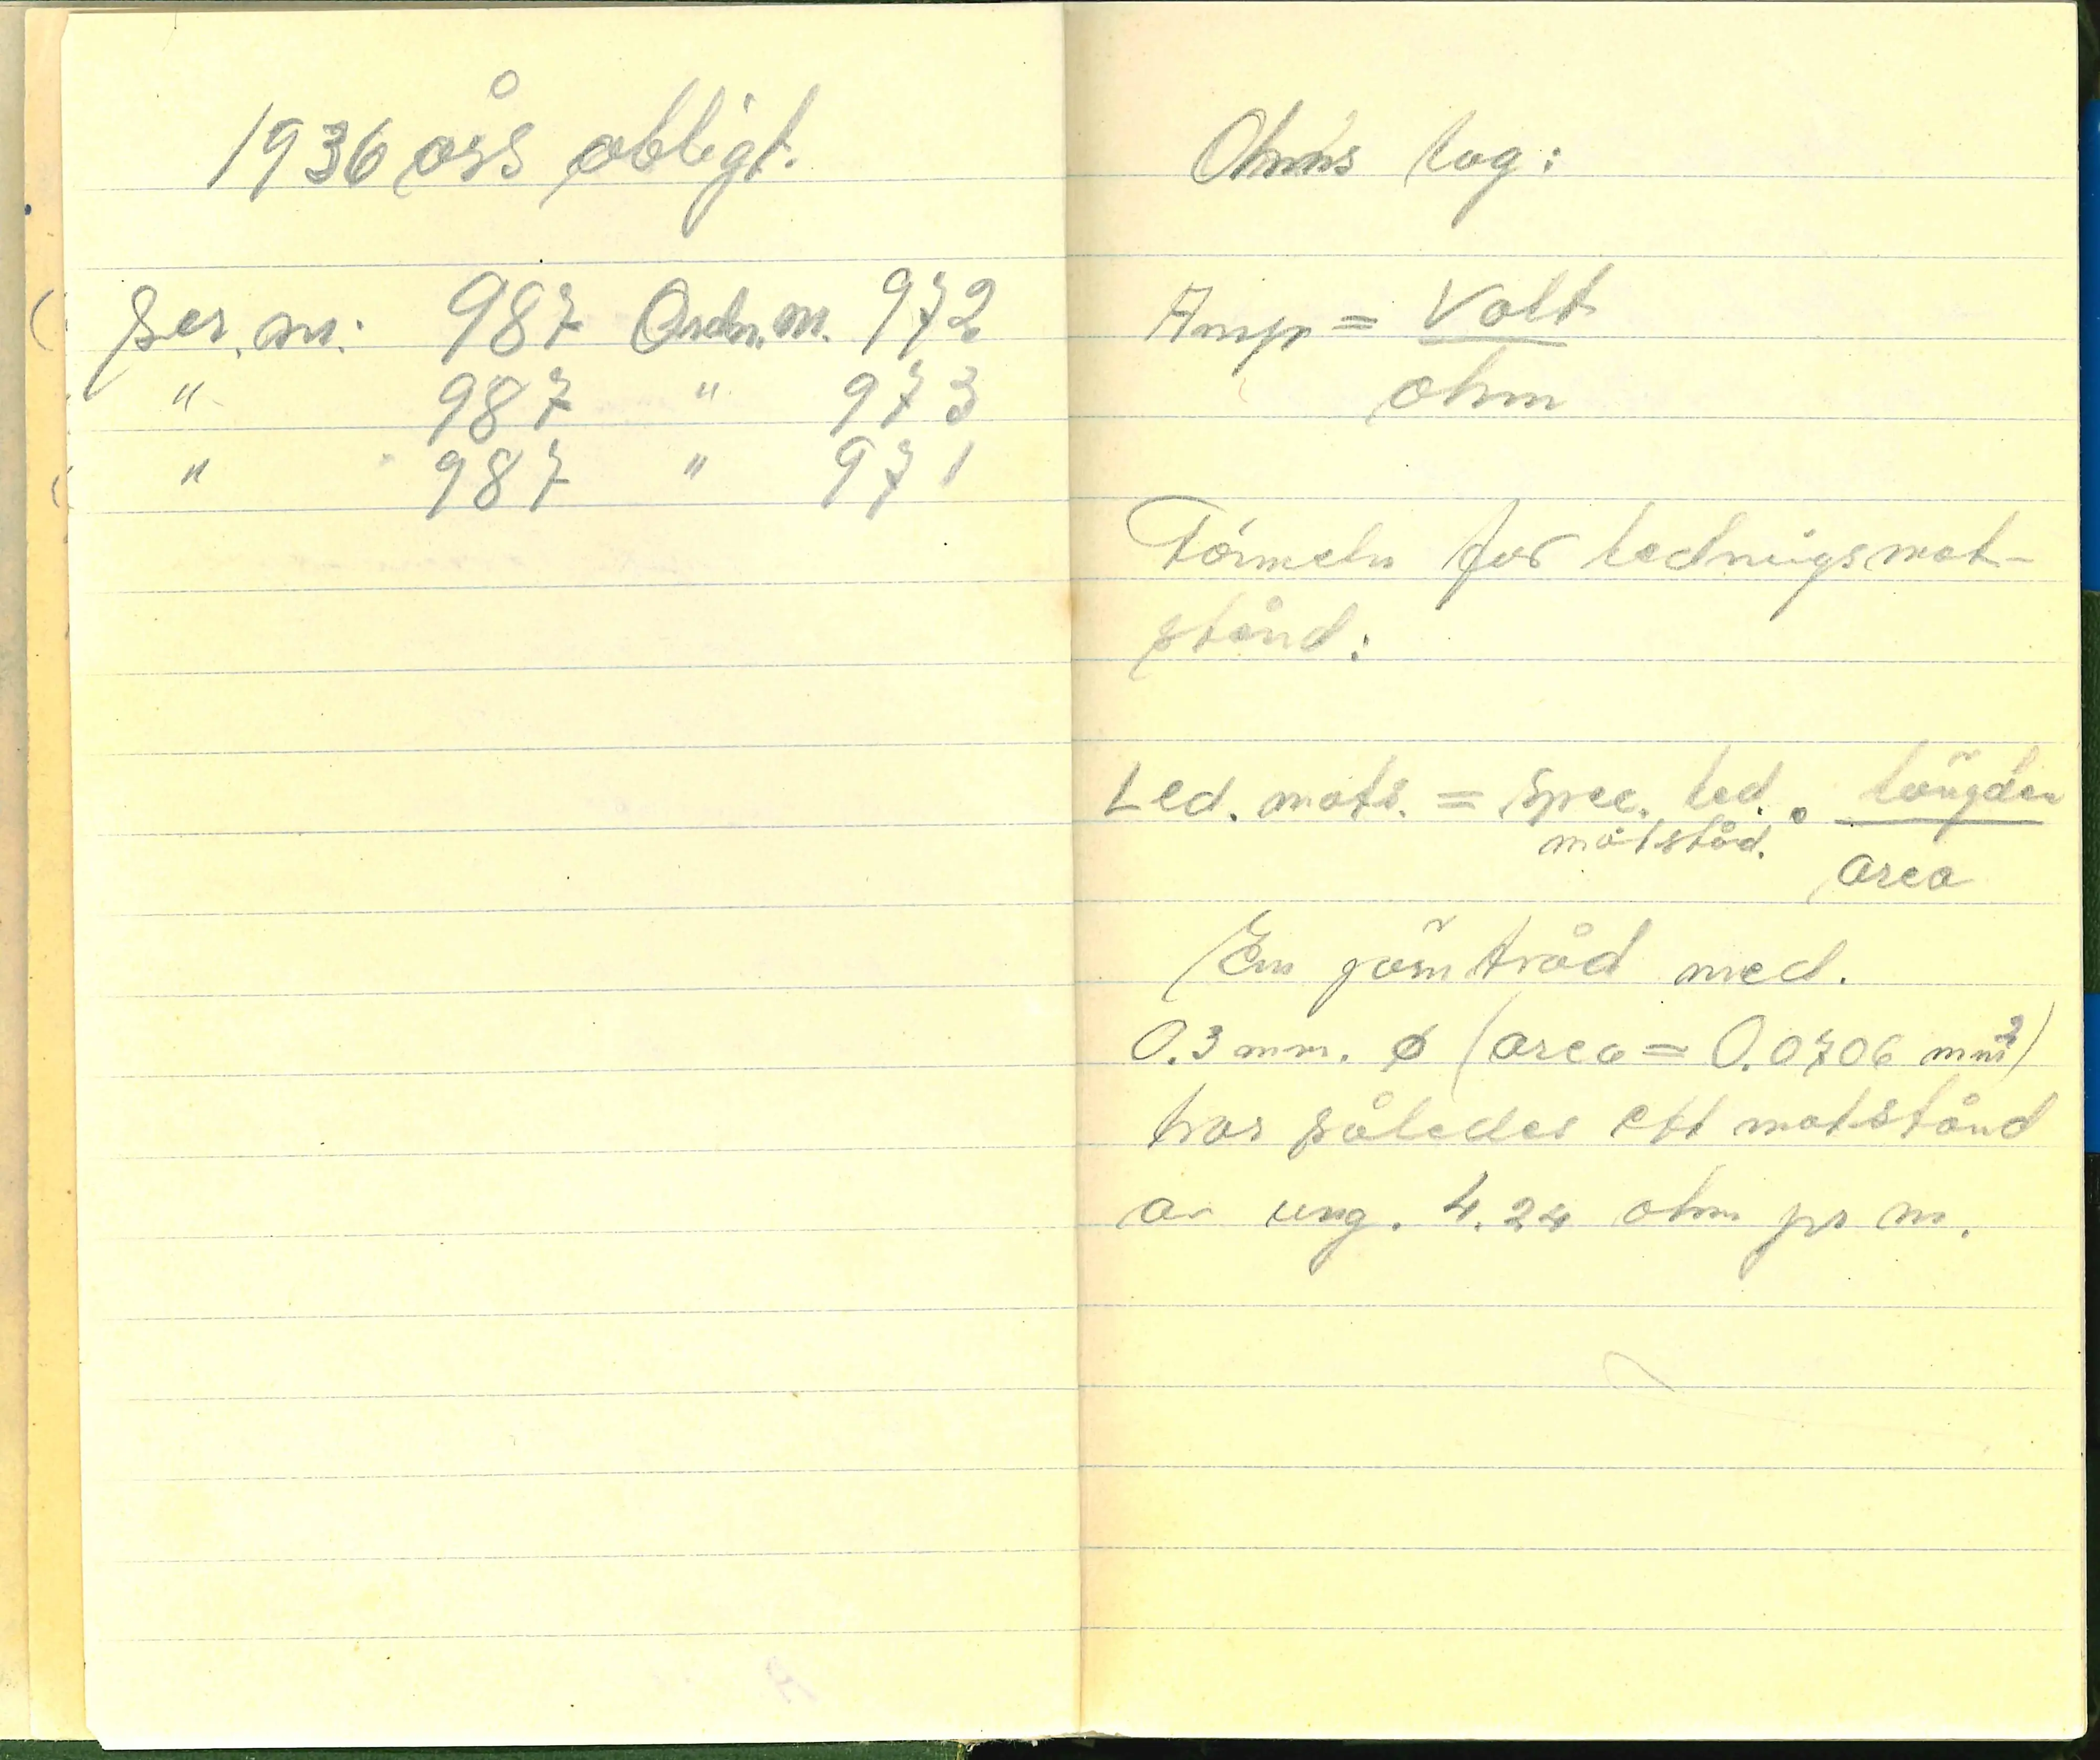 1936 års obligt.
Ser. nr. 987 Ordn. nr. 972
" 987 " 973
" 987 " 971
Ohms lag:
Amp = Volt
ohm
Formeln for lednigsmot-
stånd:
Led. mots. = Spec. led. · längden
motståd.
area
En järntråd med.
0.3 mm. ø (area = 0.0706 mm²)
har således ett motstånd
av ung. 4.24 ohm pr m.